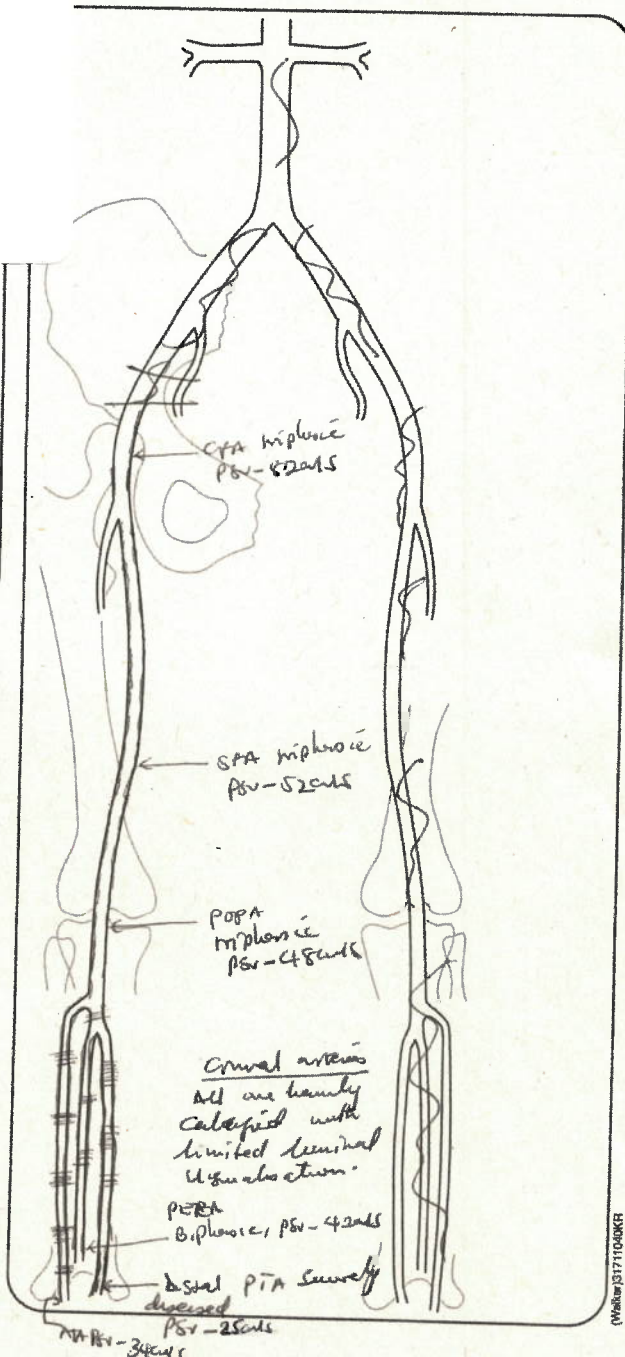 CFA triphasic
PSV-82cm/s
SFA triphasic
PSV-52cm/s
POPA
triphasic
PSV-48cm/s
Crural arteries
All are heavily
Calcified with
limited luminal
visualisation.
PERA
Biphasic, PSV-42cm/s
distal PTA severely
diseased
PSV-25cm/s
ATA PSV-34cm/s
(Walker)31711040KR